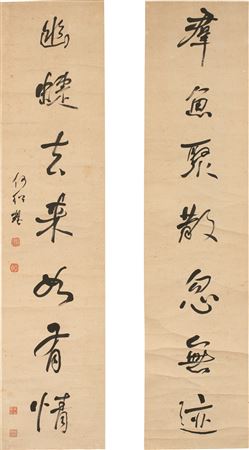 群鱼聚散忽無迹
幽蝶去来如有情
何紹基